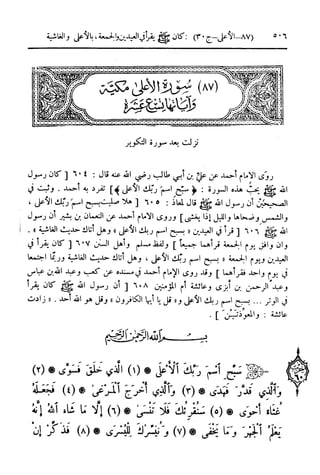 ٥٠٦ (٨٧-الأعلى-ج٣٠): كان ﷺ يقرأ في العيدين والجمعة، بالأعلى والغاشية
(٨٧) سُورَة الأَعْلىٰ مَكِّيَّة
وَآيَاتهَا تِسْعَ عَشرَة
نزلت بعد سورة التكوير
روى الإمام أحمد عن عليّ بن أبي طالب رضي الله عنه قال: ٦٠٤ [ كان رسول
الله ﷺ يحبّ هذه السورة: ﴿ سبّح اسم ربّك الأعلى ﴾ ] تفرد به أحمد. وثبت في
الصحيحين أن رسول الله ﷺ قال لمعاذ: ٦٠٥ [ هلا صليت بسبح اسم ربّك الأعلى،
والشمس وضحاها والليل إذا يغشى ] وروى الإمام أحمد عن النعمان بن بشير أن رسول
الله ﷺ ٦٠٦ [ قرأ في العيدين « بسبح اسم ربك الأعلى » وهل أتاك حديث الغاشية ».
وإن وافق يوم الجمعة قرأهما جميعاً ] ولفظ مسلم وأهل السنن ٦٠٧ [ كان يقرأ في
العيدين ويوم الجمعة « بسبح اسم ربّك الأعلى، هل أتاك حديث الغاشية وربّما اجتمعا
في يوم واحد فقرأهما ] وقد روى الإمام أحمد في مسنده عن كعب وعبد الله بن عباس
وعبد الرحمن بن أبزى وعائشة أم المؤمنين ٦٠٨ [ أن رسول الله ﷺ كان يقرأ
في الوتر ... بسبح اسم ربك الأعلى و« قل يا أيها الكافرون » وقل هو الله أحد. » زادت
عائشة: والمعوّذتين ]
بِسْمِ اللهِ الرَّحْمٰنِ الرَّحِيمِ
سَبِّحِ اسْمَ رَبِّكَ الْأَعْلَى (١) الَّذِي خَلَقَ فَسَوَّى (٢)
وَالَّذِي قَدَّرَ فَهَدَى (٣) وَالَّذِي أَخْرَجَ الْمَرْعَى (٤) فَجَعَلَهُ
غُثَاءً أَحْوَى (٥) سَنُقْرِئُكَ فَلَا تَنْسَى (٦) إِلَّا مَا شَاءَ اللهُ إِنَّهُ
يَعْلَمُ الْجَهْرَ وَمَا يَخْفَى (٧) وَنُيَسِّرُكَ لِلْيُسْرَى (٨) فَذَكِّرْ إِنْ